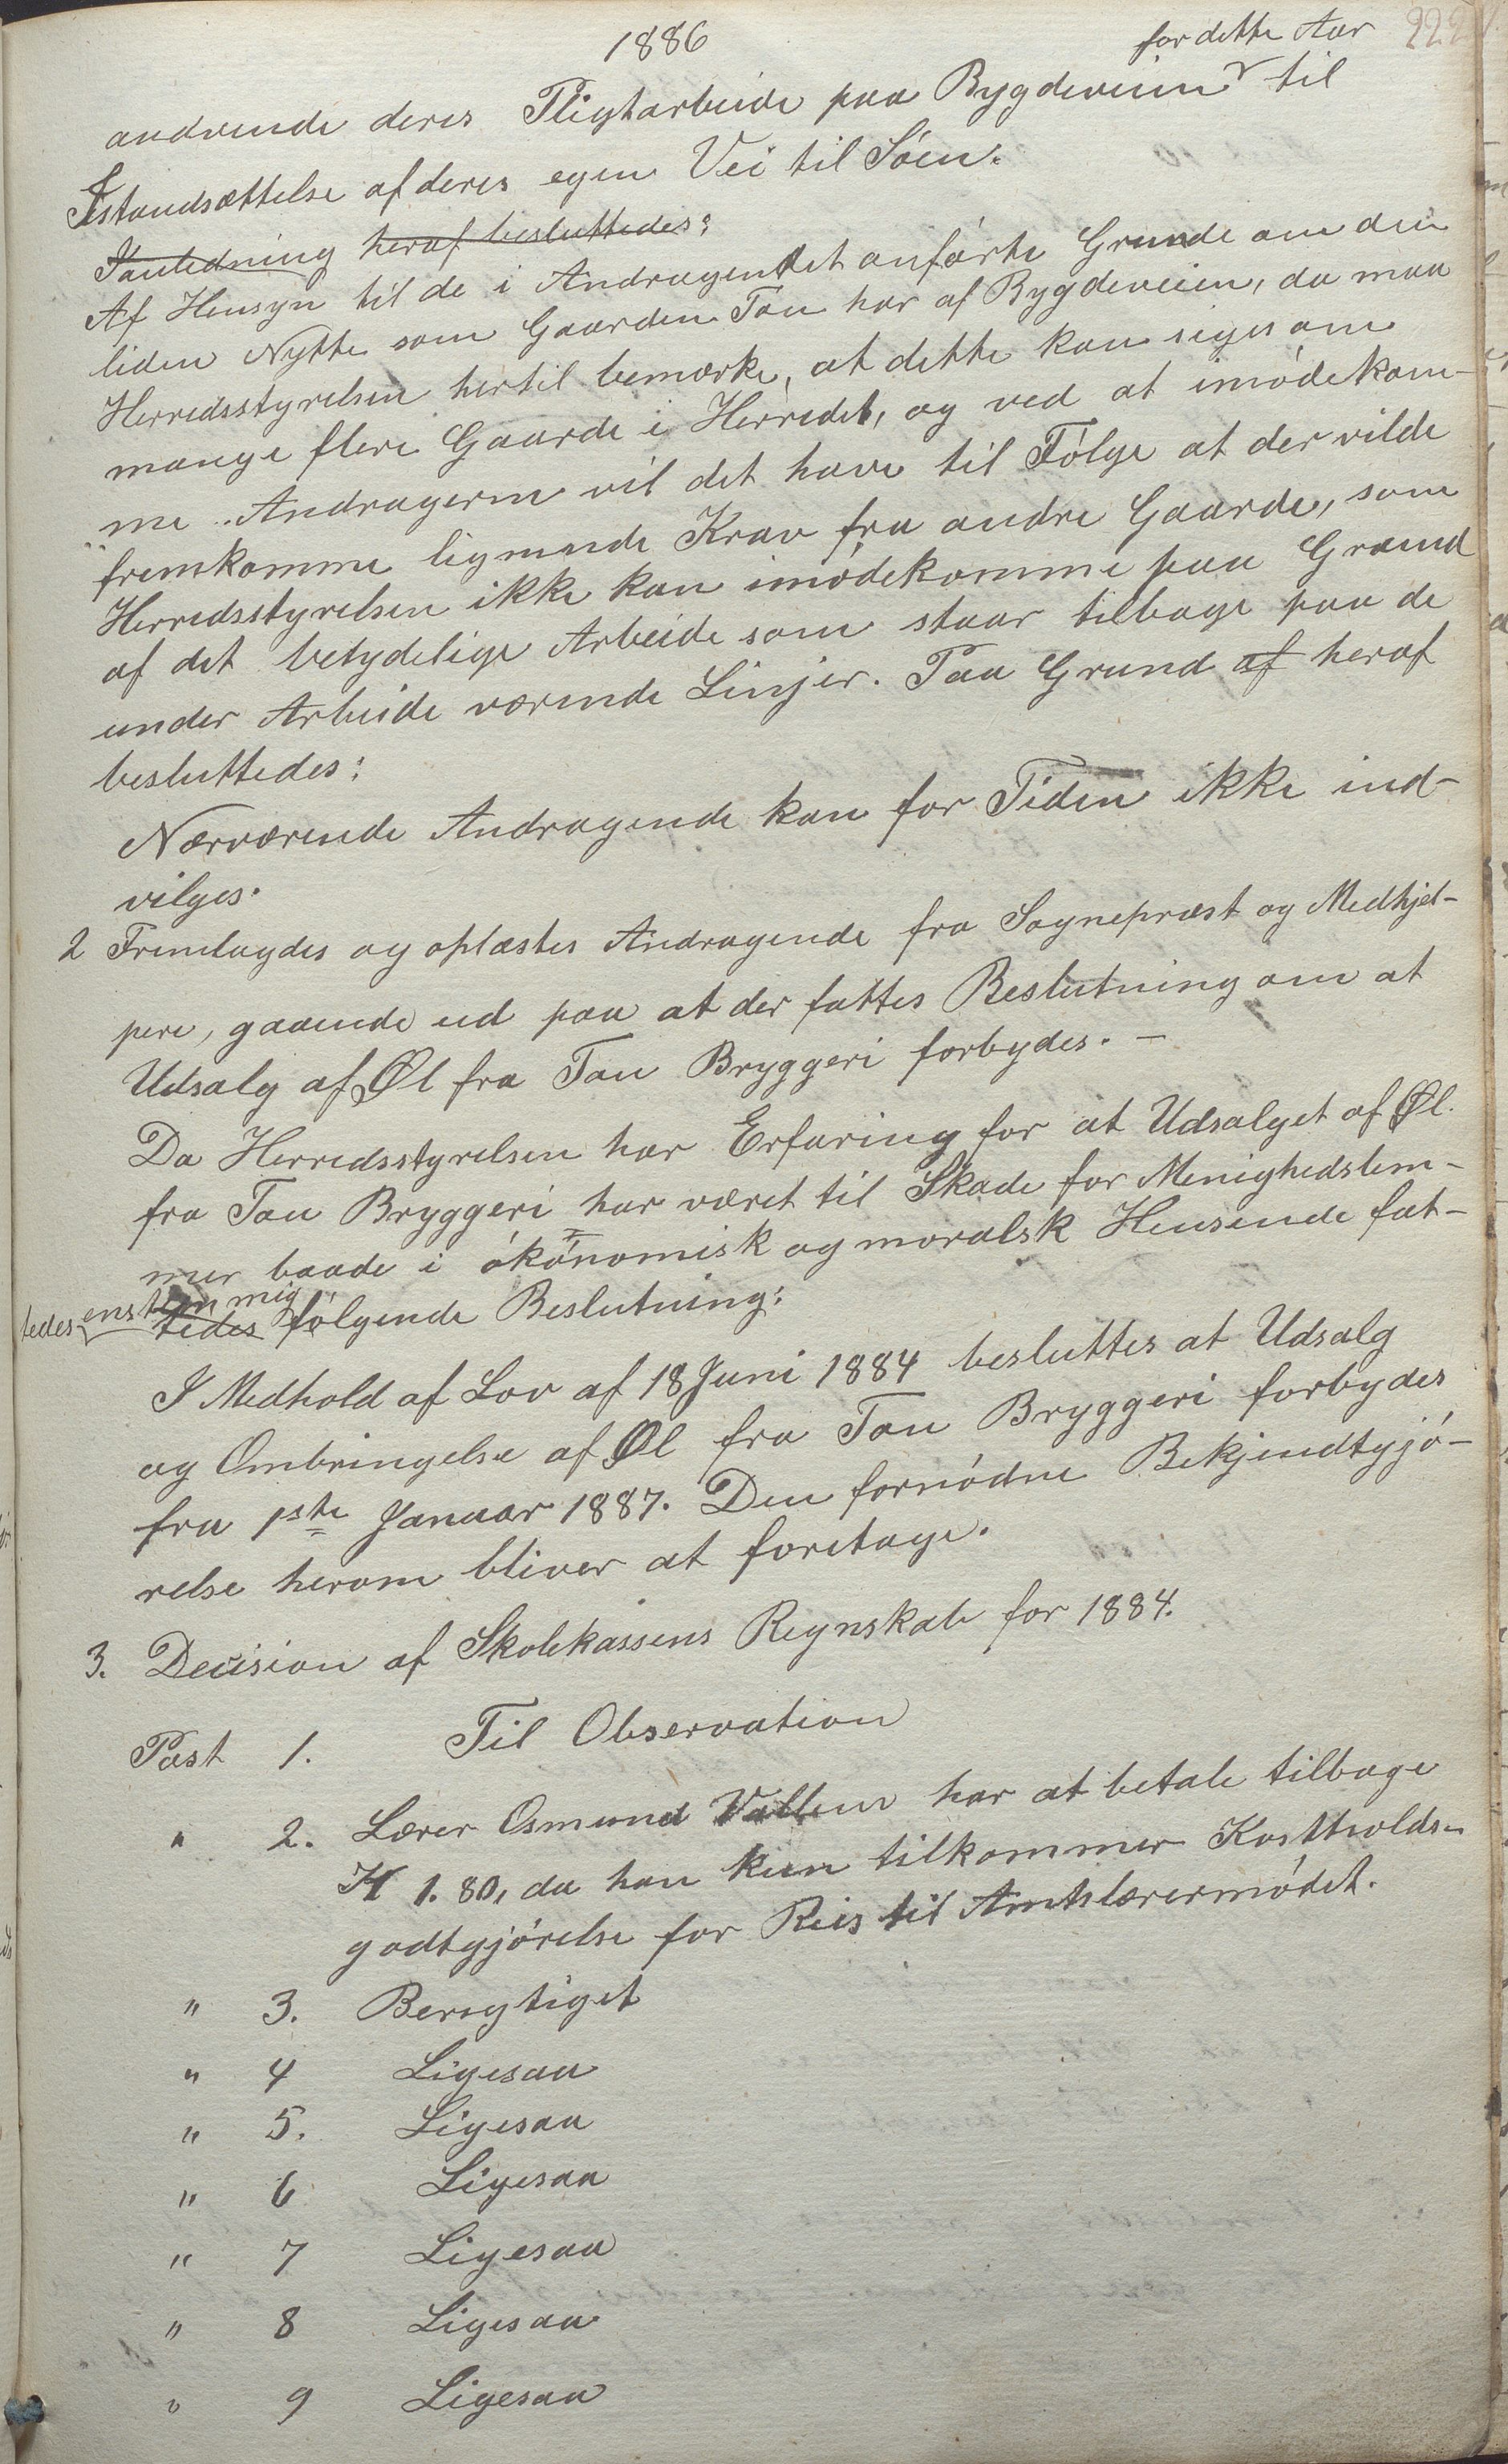 1886
222
for dette Aar
andvende deres Pligtarbeide paa Bygdeveien til
Istandsættelse af deres egen Vei til Söen.
Ianledning heraf besluttedes:
Af Hensyn til de i Andragendet anförte Grunde om den
liden Nytte som Gaarden Tou har af Bygdeveien, da maa
Herredsstyrelsen hertil bemærke, at dette kan siges om
mange flere Gaarde i Herredet, og ved at imödekom-
me Andragerne vil det have til Fölge at der vilde
fremkomme lignende Krav fra andre Gaarde, som
Herredsstyrelsen ikke kan imödekomme paa Grund
af det betydelige Arbeide som staar tilbage paa de
under Arbeide værende Linjer. Paa Grund af heraf
besluttedes:
Nærværende Andragende kan for Tiden ikke ind-
vilges.
2 Fremlagdes og oplæstes Andragende fra Sognepræst og Medhjel-
pere, gaaende ud paa at der fattes Beslutning om at
Udsalg af Øl fra Tou Bryggeri forbydes. -
Da Herredsstyrelsen har Erfaring for at Udsalget af Øl
fra Tou Bryggeri har været til Skade for Menighedslem-
mer baade i ökonomisk og moralsk Henseende fat-
tedes enstemmig
tedes fölgende Beslutning:
I Medhold af Lov af 18 Juni 1884 besluttes at Udsalg
og Ombringelse af Øl fra Tou Bryggeri forbydes
fra 1ste Januar 1887. Den fornödne Bekjendtgjö-
relse herom bliver at foretage.
3. Decision af Skolekassens Regnskab for 1884.
Post 1. Til Observation
" 2. Lærer Osmund Vallem har at betale tilbage
K 1.80, da han kun tilkommer Kostholds-
godtgjörelse for Reis til Amtslærermödet.
" 3. Berigtiget
" 4 Ligesaa
" 5. Ligesaa
" 6 Ligesaa
" 7 Ligesaa
" 8 Ligesaa
" 9 Ligesaa